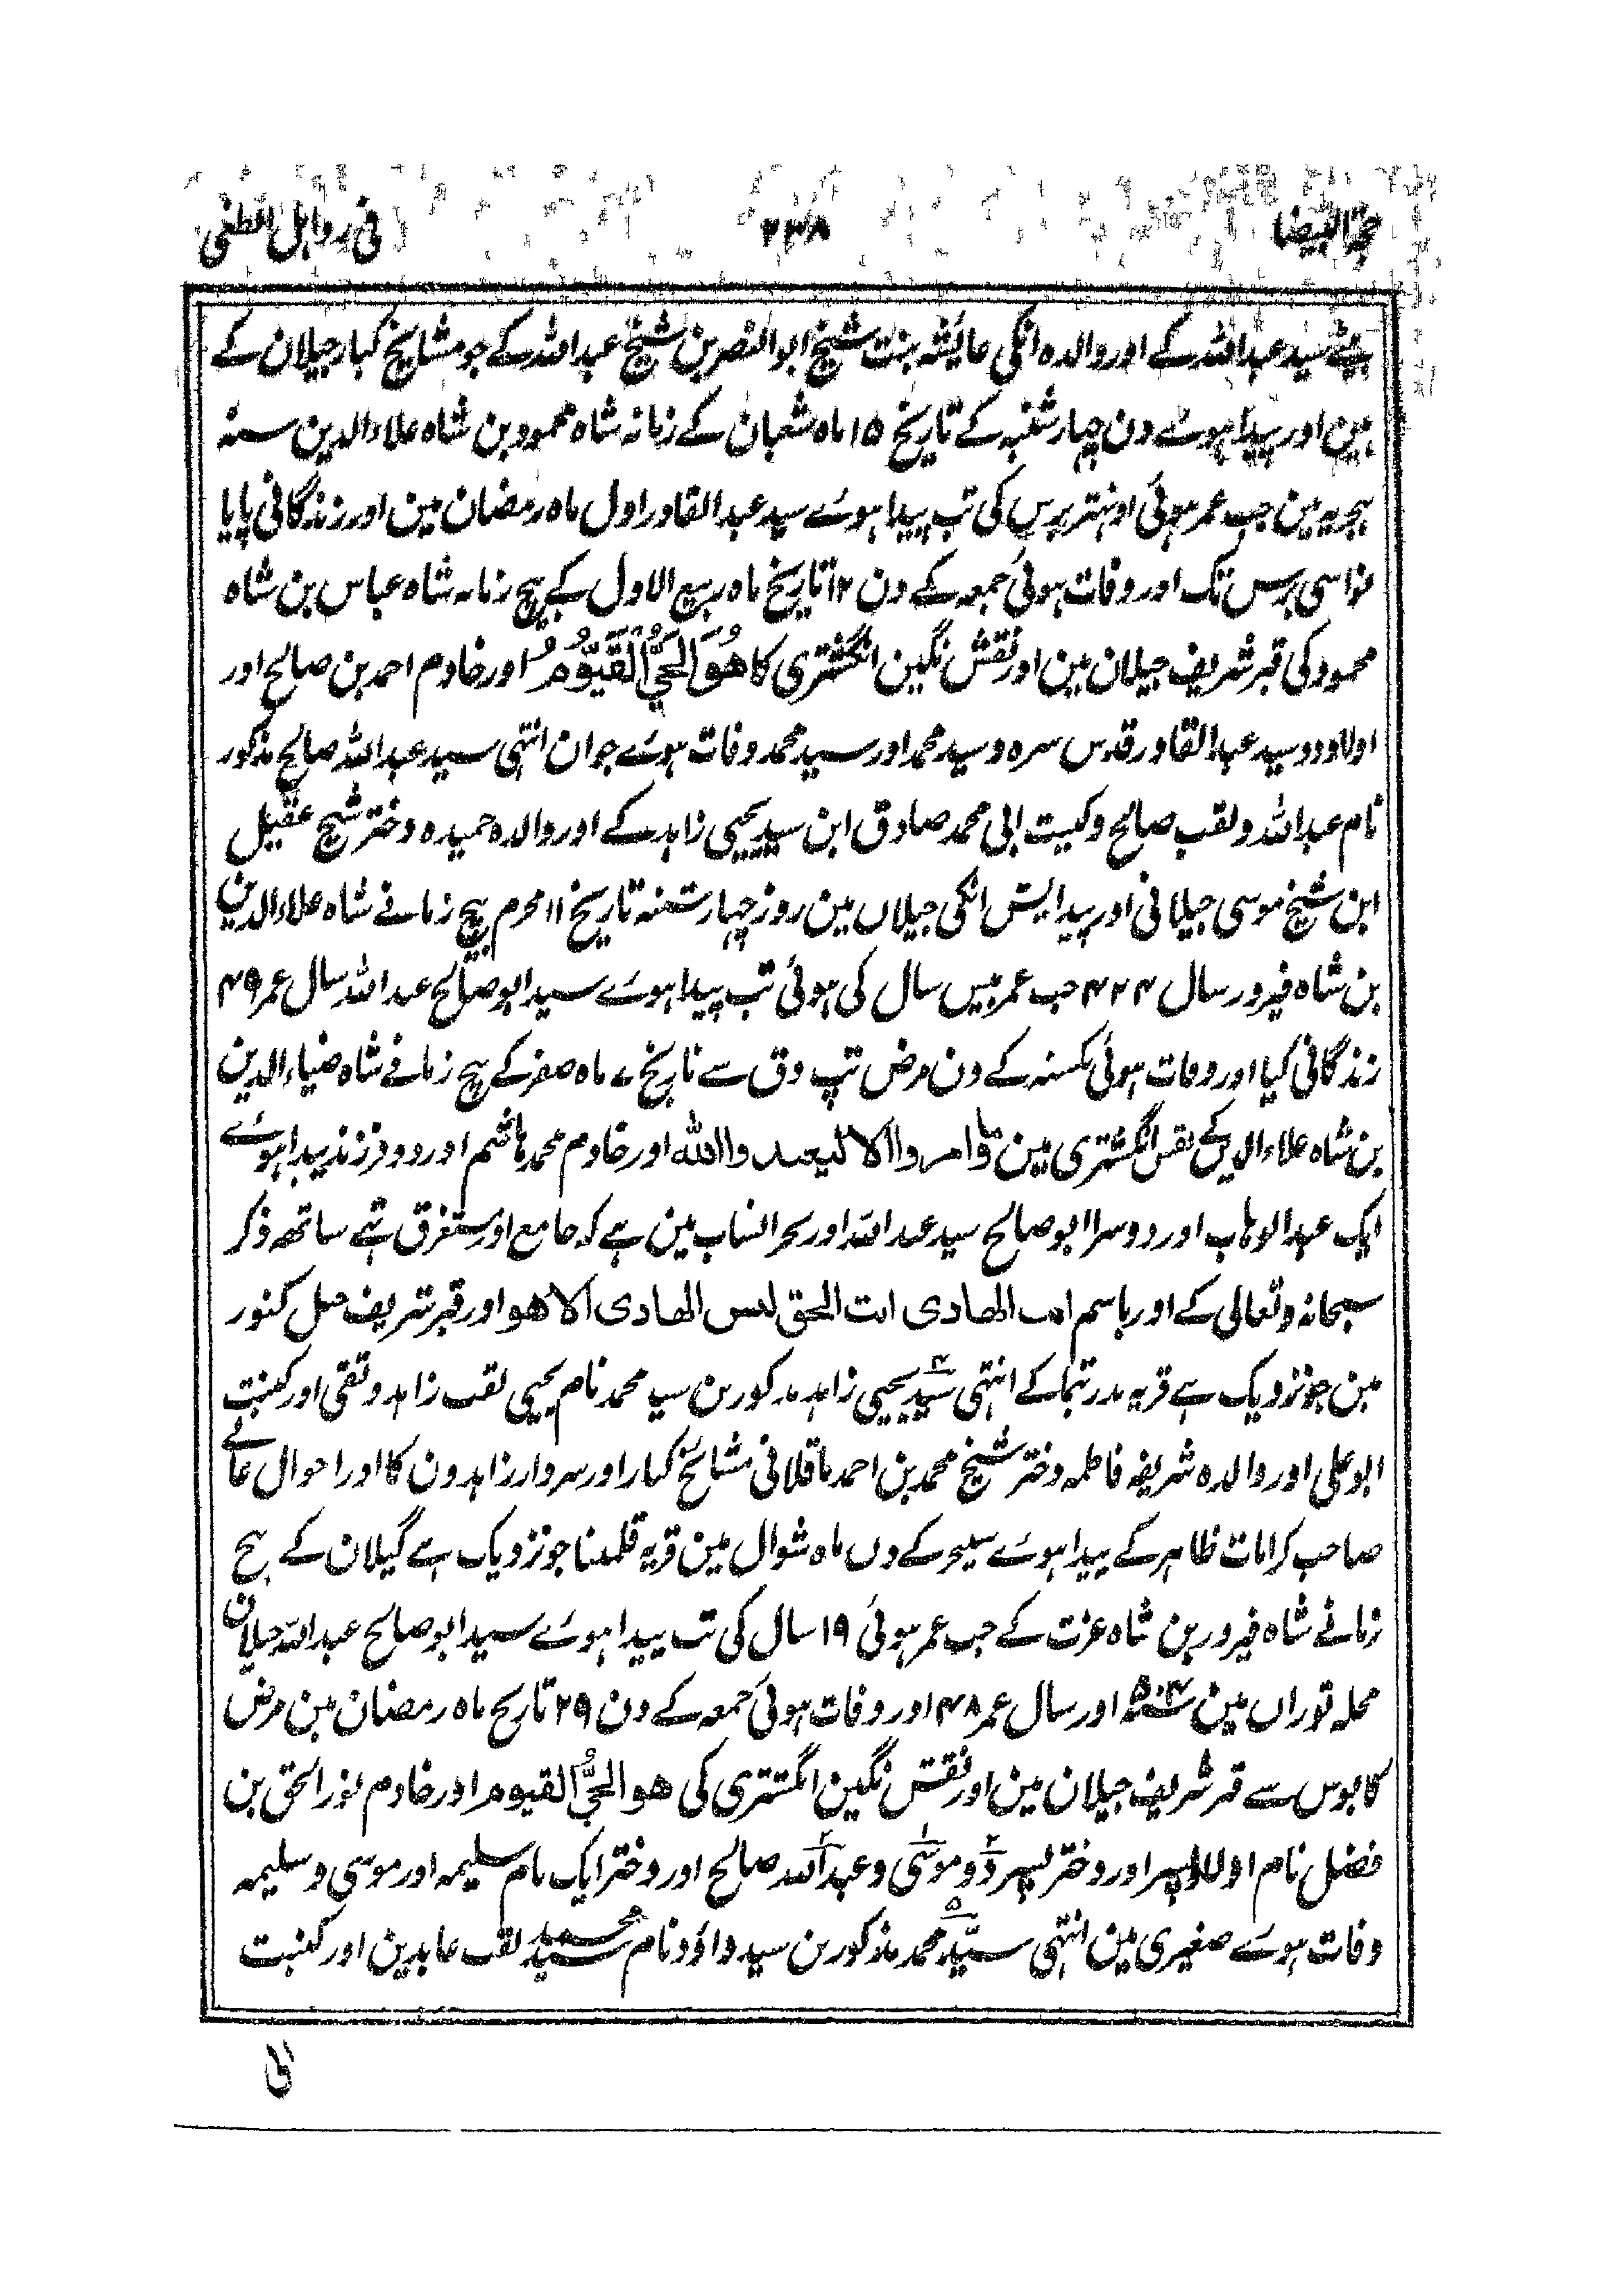 محجۃ البیضا ۲۳۸ فی
بیٹے سید عبد اللہ کے اور والدہ انکی عایشہ بنت شیخ ابو النصر بن شیخ عبد اللہ کے جو مشایخ کبار جیلان کے
ہین اور پیدا ہوئے دن چہارشنبہ کے تاریخ ۱۵ ماہ شعبان کے زمانہ شاہ محمود بن شاہ علاء الدین سنہ
ہجریہ مین جب عمر ہوئی اونہتر برس کی تب پیدا ہوئے سید عبد القادر اول ماہ رمضان مین اور زندگانی پایا
نواسی برس تک اور وفات ہوئی جمعہ کے دن ۱۲ تاریخ ماہ ربیع الاول کے بیچ زمانہ شاہ عباس بن شاہ
محمود کی قبر شریف جیلان مین اور نقش نگین انگشتری کا هُوَ الْحَيُّ الْقَيُّوْمُ اور خادم احمد بن صالح اور
اولاد دو سید عبد القادر قدس سرہ و سید محمد اور سید محمد وفات ہوئے جوان انتہی سید عبد اللہ صالح مذکور
نام عبد اللہ و لقب صالح و کنیت ابی محمد صادق ابن سید یحیی زاہد کے اور والدہ حمیدہ دختر شیخ عقیل
ابن شیخ موسی جیلانی اور پیدایش انکی جیلان مین روز چہارشنبہ تاریخ ۱۱ محرم بیچ زمانے شاہ علاء الدین
بن شاہ فیروز سال ۴۲۴ جب عمر بیس سال کی ہوئی تب پیدا ہوئے سید ابو صالح عبد اللہ سال عمر ۴۹
زندگانی کیا اور وفات ہوئی یکشنبہ کے دن مرض تپ دق سے تاریخ ۷ ماہ صفر کے بیچ زمانے شاہ ضیاء الدین
بن شاہ علاء الدین کے نقش انگشتری مین وما امروا الا لیعبدوا اللہ اور خادم محمد ہاشم اور دو فرزند پیدا ہوئے
ایک عبد الوہاب اور دوسرا ابو صالح سید عبد اللہ اور بحر انساب مین ہے کہ جامع اور مستغرق تہے ساتھ ذکر
سبحانہ و تعالی کے اور باسم انت الھادی انت الحق لیس الھادی الا ھو اور قبر شریف جبل کنور
مین جو نزدیک ہے قریہ کے انتہی سید یحیی زاہد مذکور بن سید محمد نام یحیی لقب زاہد و تقی اور کنیت
ابو علی اور والدہ شریفہ فاطمہ دختر شیخ محمد بن احمد باقلانی مشایخ کبار اور سردار زاہدون کا اور احوال عالے
صاحب کرامات ظاہر کے پیدا ہوئے کے دن ماہ شوال مین قریہ قلمدنا جو نزدیک ہے گیلان کے بیچ
زمانے شاہ فیروز بن شاہ عزت کے جب عمر ہوئی ۱۹ سال کی تب پیدا ہوئے سید ابو صالح عبد اللہ جیلان
محلہ توران مین اور سال عمر ۴۸ اور وفات ہوئی جمعہ کے دن ۲۹ تاریخ ماہ رمضان مین مرض
کابوس سے قبر شریف جیلان مین اور نقش نگین انگشتری کی ھو الحیُّ القیوم اور خادم نور الحق بن
فضل نام اولاد پسر اور دختر پسر دو موسی و عبد اللہ صالح اور دختر ایک نام سلیمہ اور موسی و سلیمہ
وفات ہوئے صغیری مین انتہی سید محمد مذکور بن سید داؤد نام سید محمد لقب عابدین اور کنیت